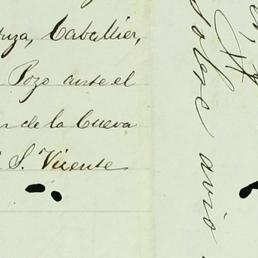 Caballier,
Pozo ante el
de la Cueva
S. Vicente
sobre avio